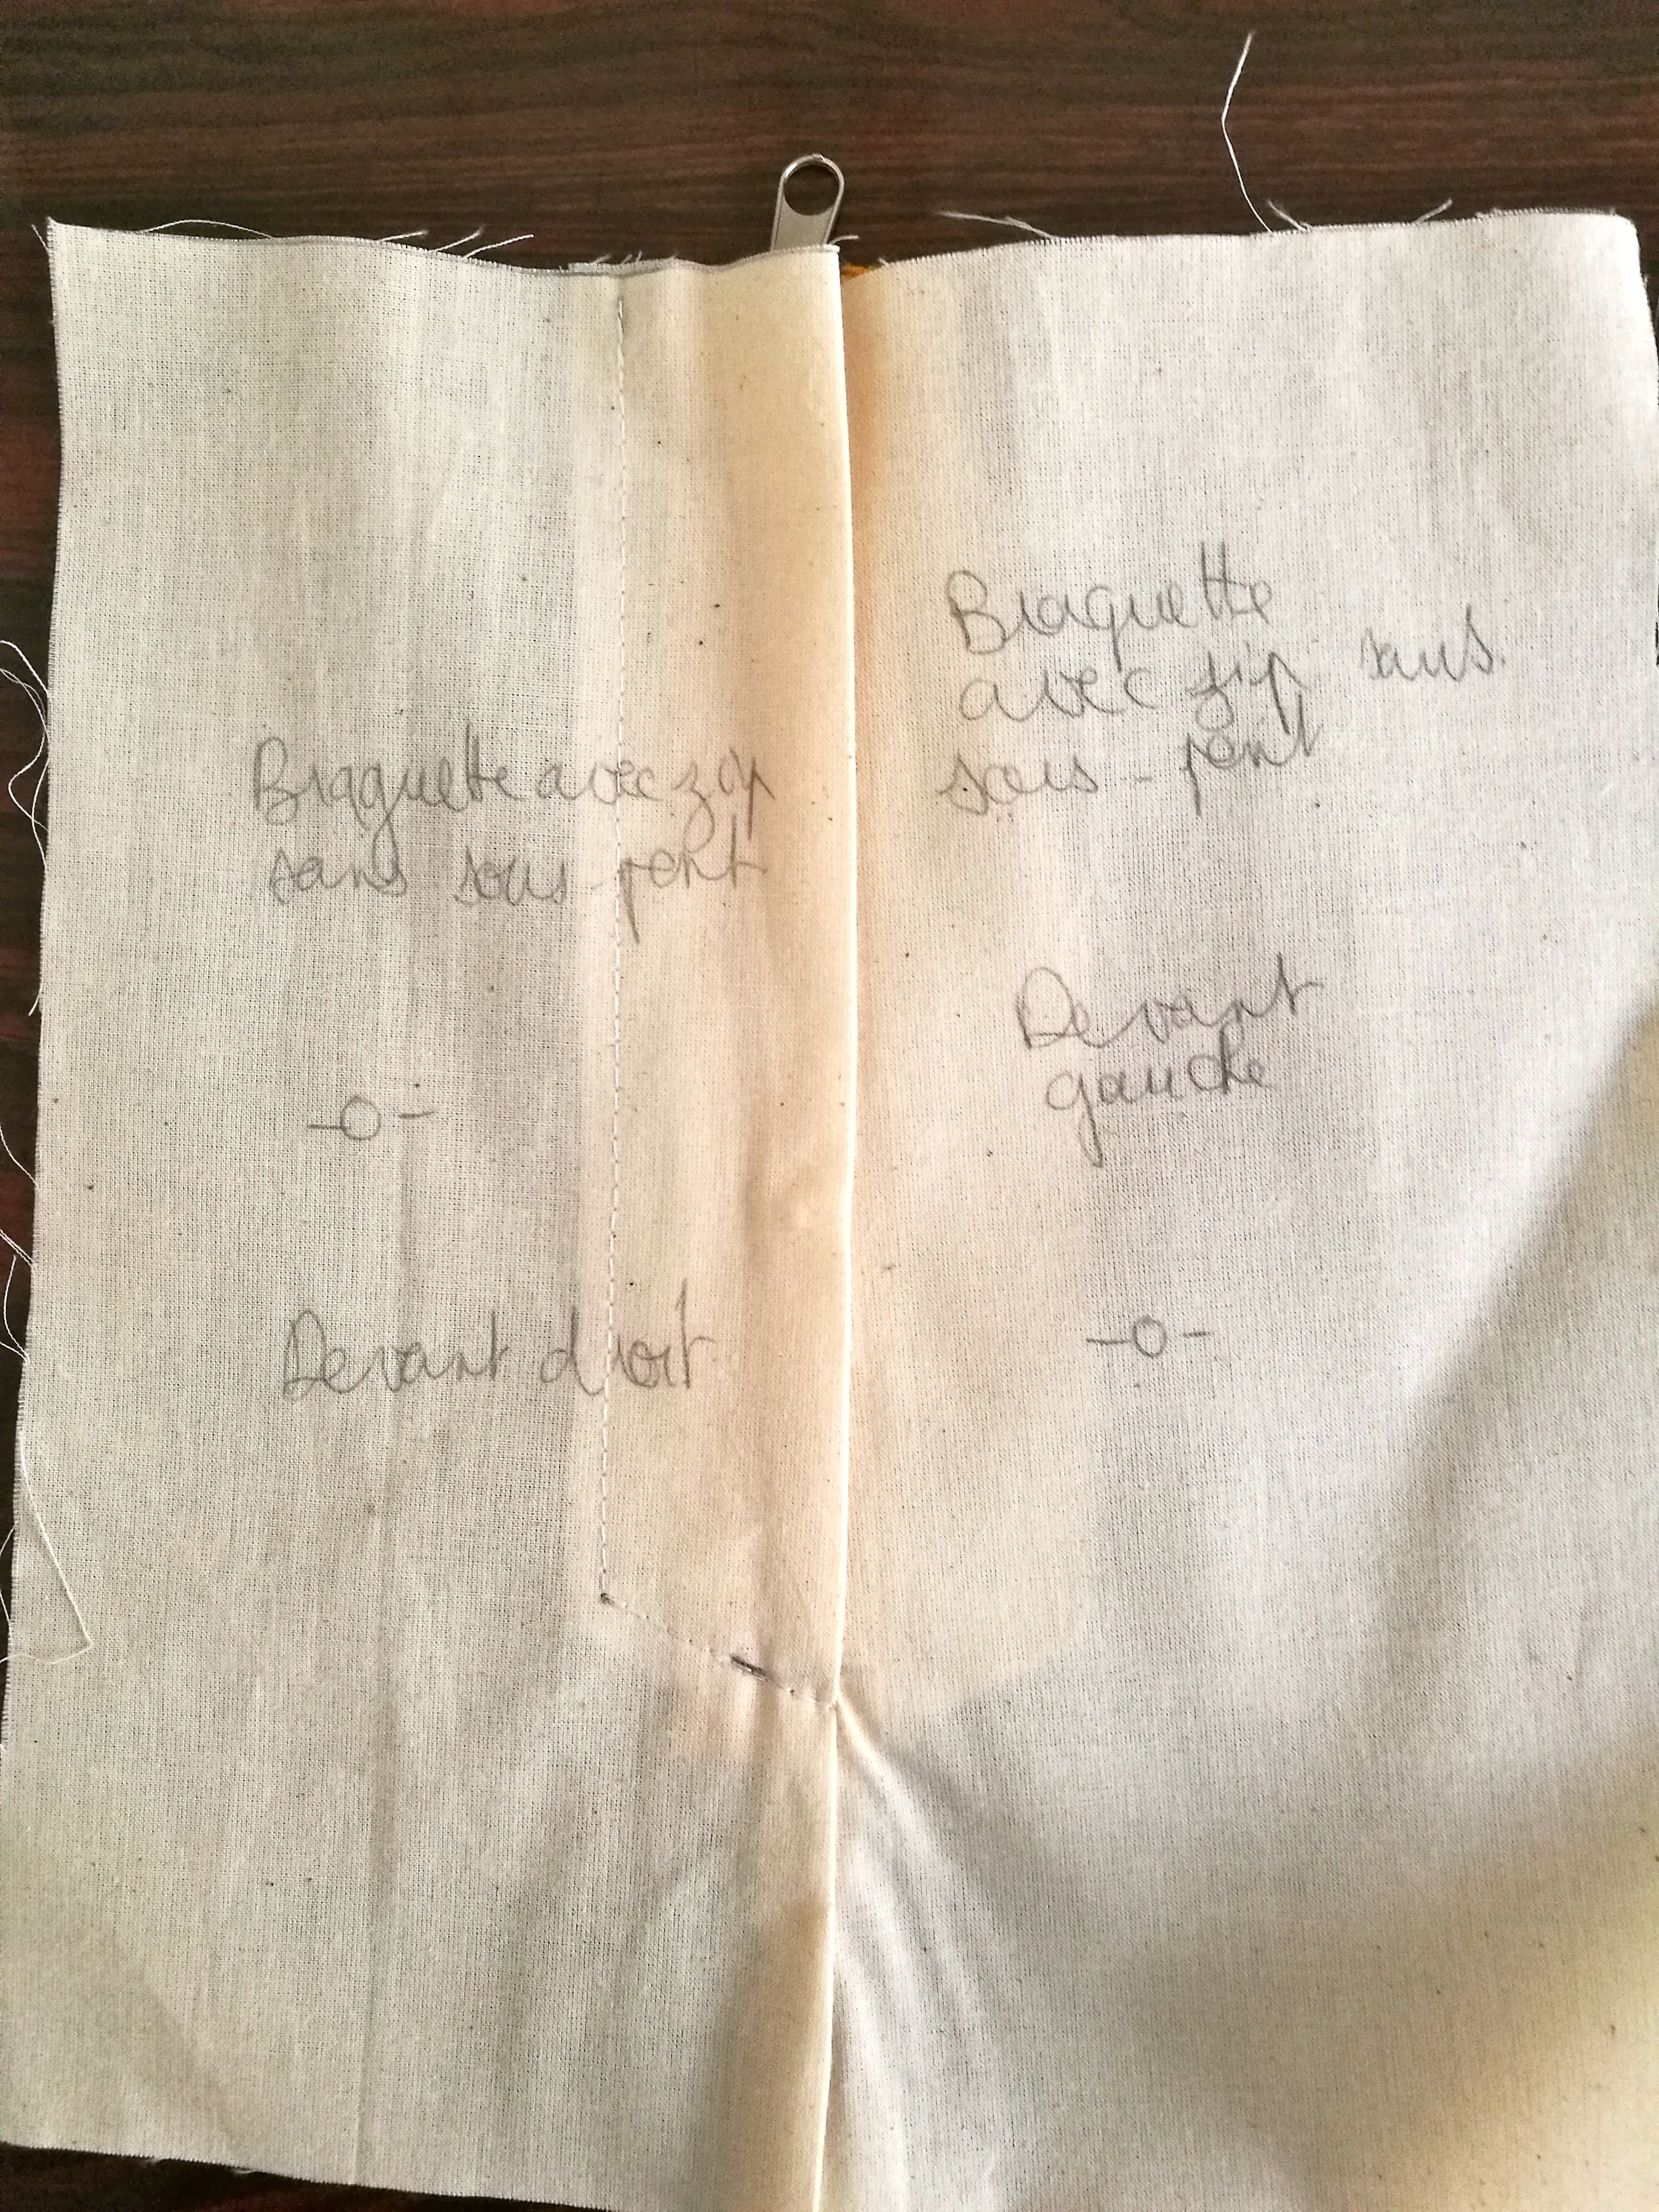 Braguette avec zip
sans sous-pont
-o-
Devant droit
Braguette
avec zip sans
sous-pont
Devant
gauche
-o-